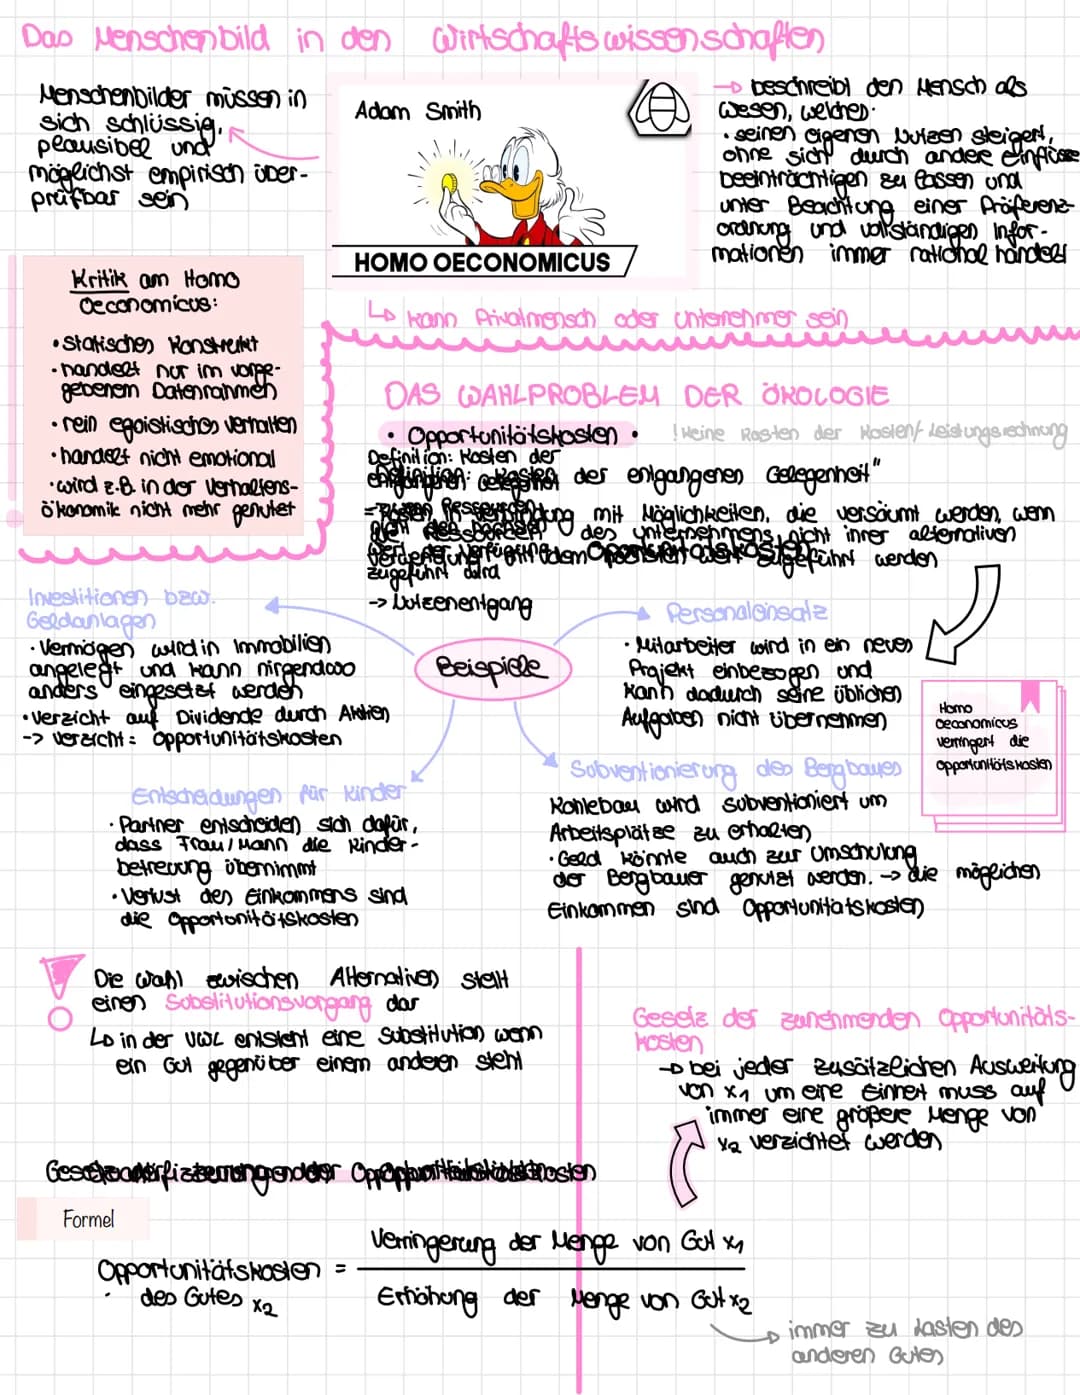 Das Menschenbild in den Wirtschaftswissenschaften
Menschenbilder müssen in
sich schlüssig,
plausibel und
möglichst empirisch über-
prüfbar sein
Adam Smith
HOMO OECONOMICUS
→ beschreibt den Mensch als
Wesen, welches:
• seinen eigenen Nutzen steigert,
ohne sich durch andere Einflüsse
beeinträchtigen zu lassen und
unter Beachtung einer Präferenz-
ordnung und vollständigen Infor-
mationen immer rational handelt
↳ kann Privatmensch oder Unternehmer sein
Kritik am Homo
Oeconomicus:
• statisches Konstrukt
• handelt nur im vorge-
gebenem Datenrahmen
• rein egoistisches Verhalten
• handelt nicht emotional
• wird z.B. in der Verhaltens-
ökonomik nicht mehr genutzt
DAS WAHLPROBLEM DER ÖKOLOGIE
• Opportunitätskosten •
! Keine Kosten der Kosten/Leistungsrechnung
Definition: Kosten der
der entgangenen Gelegenheit"
mit Möglichkeiten, die versäumt werden, wenn
des Unternehmens nicht ihrer alternativen
zugeführt werden
zugeführt wird
-> Nutzenentgang
Beispiele
Investitionen bzw.
Geldanlagen
• Vermögen wird in Immobilien
angelegt und kann nirgendwo
anders eingesetzt werden
• Verzicht auf Dividende durch Aktien
-> Verzicht = Opportunitätskosten
Personaleinsatz
• Mitarbeiter wird in ein neues
Projekt einbezogen und
kann dadurch seine üblichen
Aufgaben nicht übernehmen
Homo
oeconomicus
verringert die
Opportunitätskosten
Entscheidungen für Kinder
• Partner entscheiden sich dafür,
dass Frau/Mann die Kinder-
betreuung übernimmt
• Verlust des Einkommens sind
die Opportunitätskosten
Subventionierung des Bergbaues
Kohlebau wird subventioniert um
Arbeitsplätze zu erhalten
• Geld könnte auch zur Umschulung
der Bergbauer genutzt werden. -> die möglichen
Einkommen sind Opportunitätskosten
Die Wahl zwischen Alternativen stellt
einen Substitutionsvorgang dar
↳ in der VWL entsteht eine Substitution wenn
ein Gut gegenüber einem anderen steht
Gesetz der zunehmenden Opportunitäts-
kosten
→ bei jeder zusätzlichen Ausweitung
von x1 um eine Einheit muss auf
immer eine größere Menge von
x2 verzichtet werden
Formel
Opportunitätskosten =
des Gutes x2
Verringerung der Menge von Gut x1
Erhöhung der Menge von Gut x2
→ immer zu Lasten des
anderen Gutes